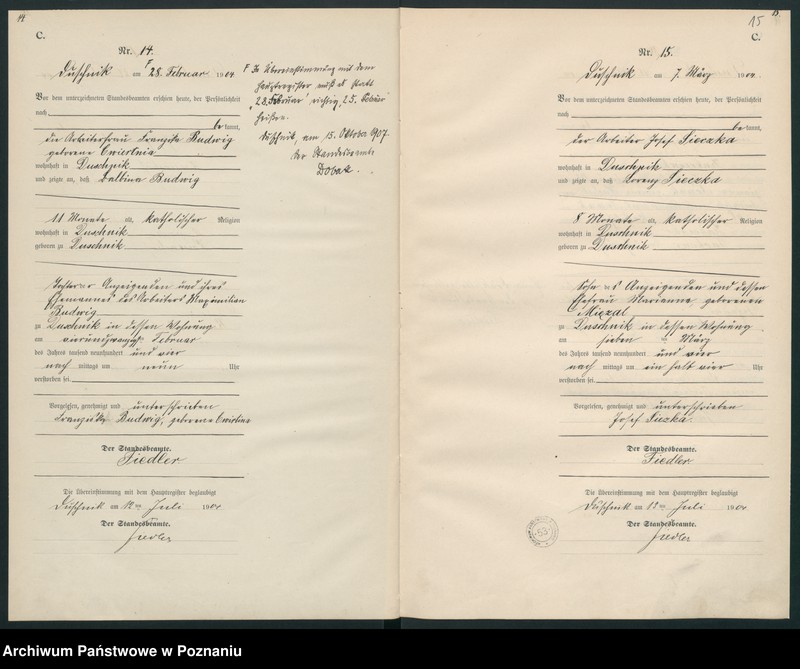 14
C.
Nr. 14.
Duschnik am 28. Februar 1904
Vor dem unterzeichneten Standesbeamten erschien heute, der Persönlichkeit
nach
be kannt,
die Arbeiterfrau Franziska Budwig
geborene Cwiertnia
wohnhaft in Duschnik
und zeigte an, daß Balbina Budwig
11 Monate alt, katholischer Religion
wohnhaft in Duschnik
geboren zu Duschnik
Tochter der Anzeigenden und ihres
Ehemannes des Arbeiters Maximilian
Budwig
zu Duschnik in dessen Wohnung
am Februar
des Jahres tausend neunhundert und vier
nach mittags um neun Uhr
verstorben sei.
Vorgelesen, genehmigt und unterschrieben
Budwig, geborene
Der Standesbeamte.
Fiedler
Die Übereinstimmung mit dem Hauptregister beglaubigt
Duschnik am 12ten Juli 1904
Der Standesbeamte.
Fiedler
F In Übereinstimmung mit dem
Hauptregister muß es statt
"28. Februar" richtig 25. Februar
heißen.
Duschnik, am 15. Oktober 1907.
Der Standesbeamte
15
C.
Nr. 15.
Duschnik am 7. März 1904.
Vor dem unterzeichneten Standesbeamten erschien heute, der Persönlichkeit
nach
be kannt,
der Arbeiter Josef Sieczka
wohnhaft in Duschnik
und zeigte an, daß Lorenz Sieczka
8 Monate alt, katholischer Religion
wohnhaft in Duschnik
geboren zu Duschnik
Sohn des Anzeigenden und dessen
Ehefrau Marianna geborenen
zu Duschnik in dessen Wohnung
am sieben ten März
des Jahres tausend neunhundert und vier
nach mittags um ein halb vier Uhr
verstorben sei.
Vorgelesen, genehmigt und unterschrieben
Josef
Der Standesbeamte.
Fiedler
Die Übereinstimmung mit dem Hauptregister beglaubigt
Duschnik am 12ten Juli 1904
Der Standesbeamte.
Fiedler
Archiwum Państwowe w Poznaniu